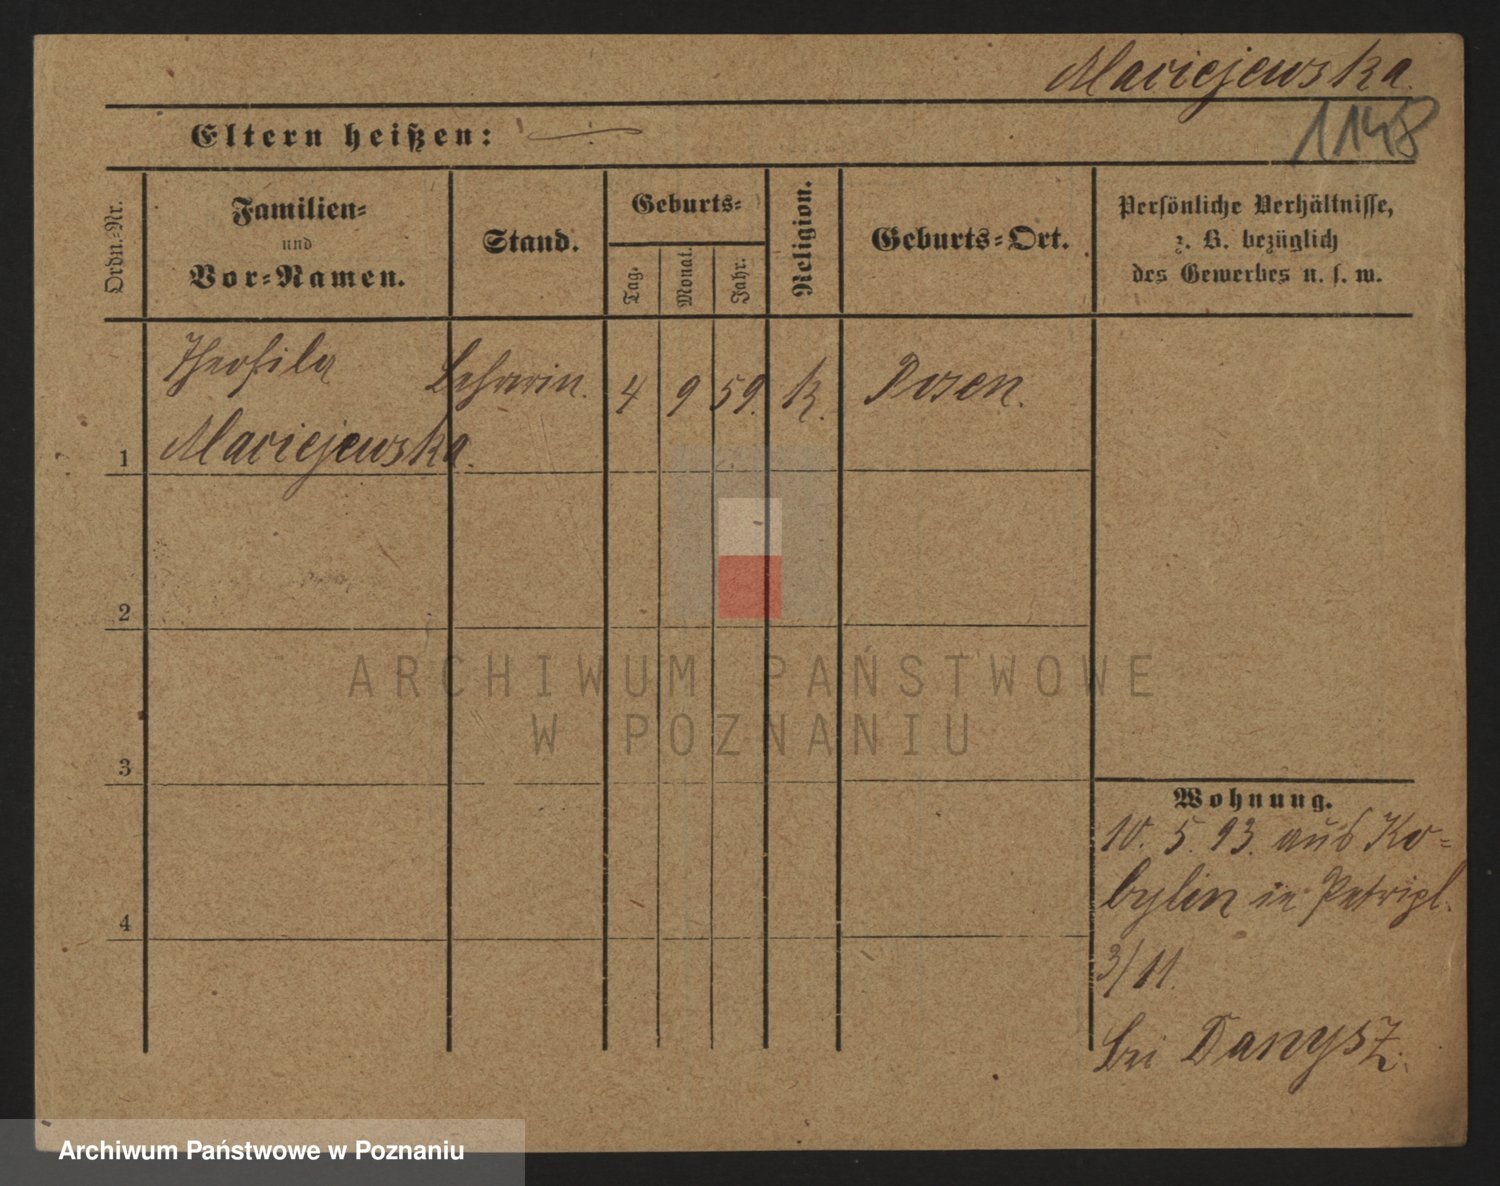 Maciejewska.
1148
Eltern heißen:
Ordn.-Nr.
Familien-
und
Vor-Namen.
Stand.
Geburts-
Tag.
Monat.
Jahr.
Religion.
Geburts-Ort.
Persönliche Verhältnisse,
z. B. bezüglich
des Gewerbes u. s. w.
Theofila
Maciejewska.
4 9 59. K. Posen.
1
2
3
4
Wohnung.
10. 5. 93. aus Ko-
bylin in Petripl.
3/11.
bei Danysz.
ARCHIWUM PAŃSTWOWE
W POZNANIU
Archiwum Państwowe w Poznaniu